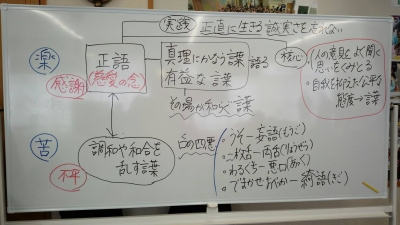 実践 正直に生きる誠実さを忘れない
楽
正語
慈愛の念
感謝
真理にかなう言葉
有益な言葉
語る
核心
人の意見をよく聞く
思いをくみとる
・自我を抑えた公平な
態度→言葉
その場が和らぐ言葉
苦
不平
調和や和合を
乱す言葉
口の四悪
・うそー妄語(もうご)
・二枚舌ー両舌(りょうぜつ)
・わるくちー悪口(あっく)
・でまかせ ー綺語(きご)